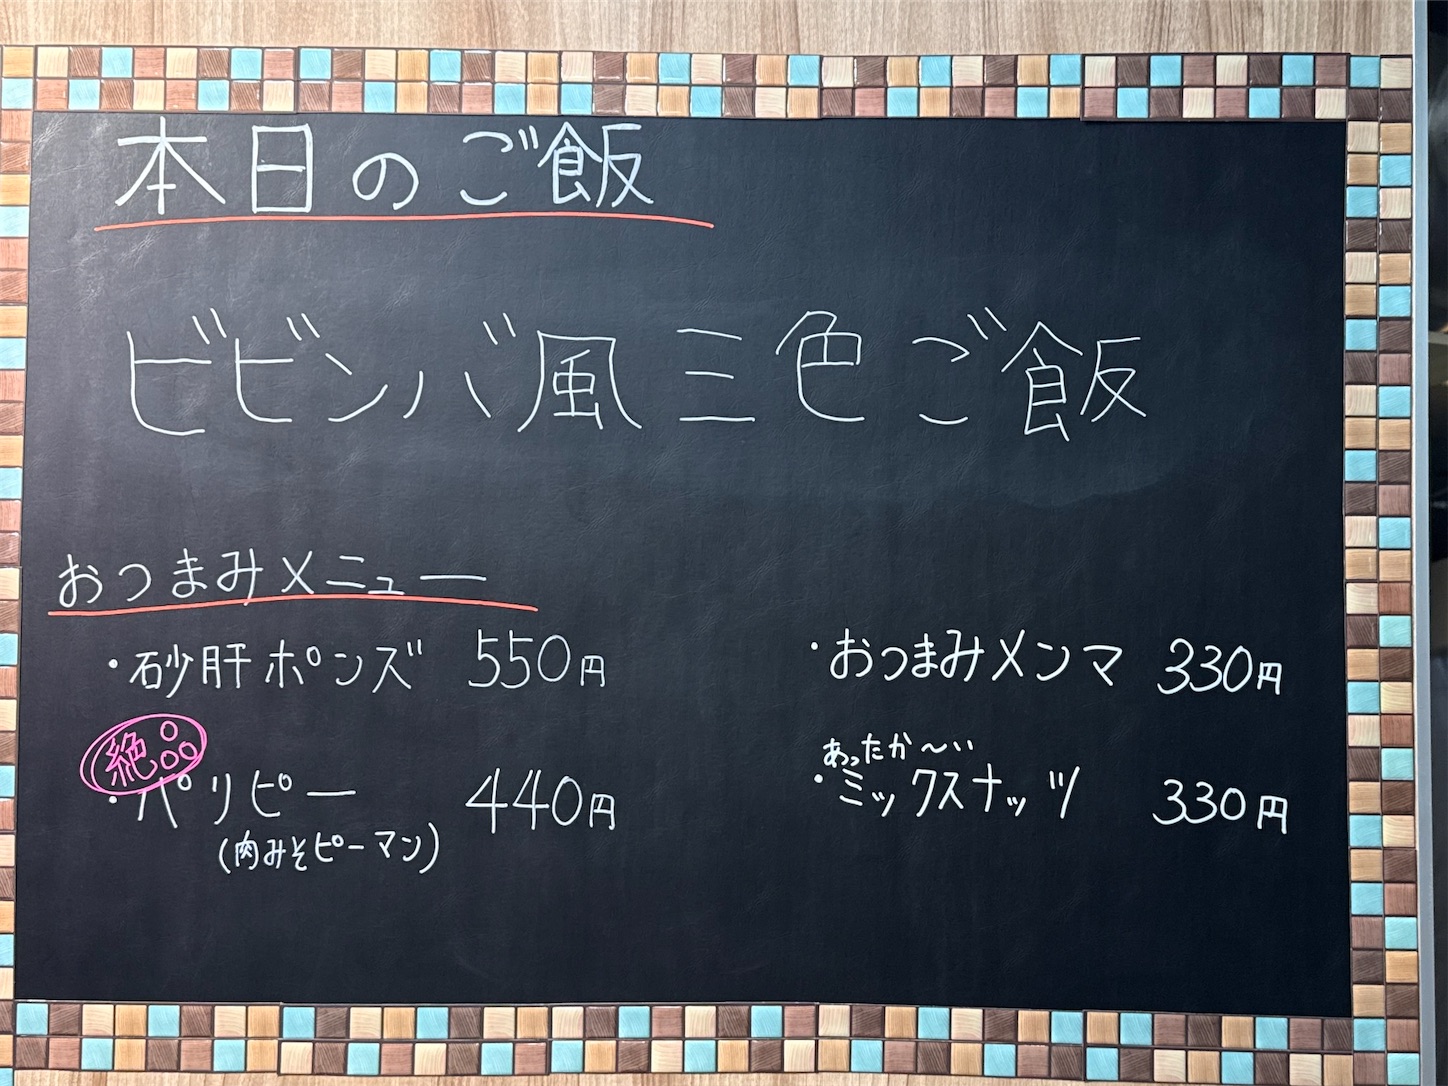 本日のご飯
ビビンバ風三色ご飯
おつまみメニュー
・砂肝ポンズ 550円
絶品
・パリピー 440円
(肉みそピーマン)
・おつまみメンマ 330円
あったか〜い
・ミックスナッツ 330円